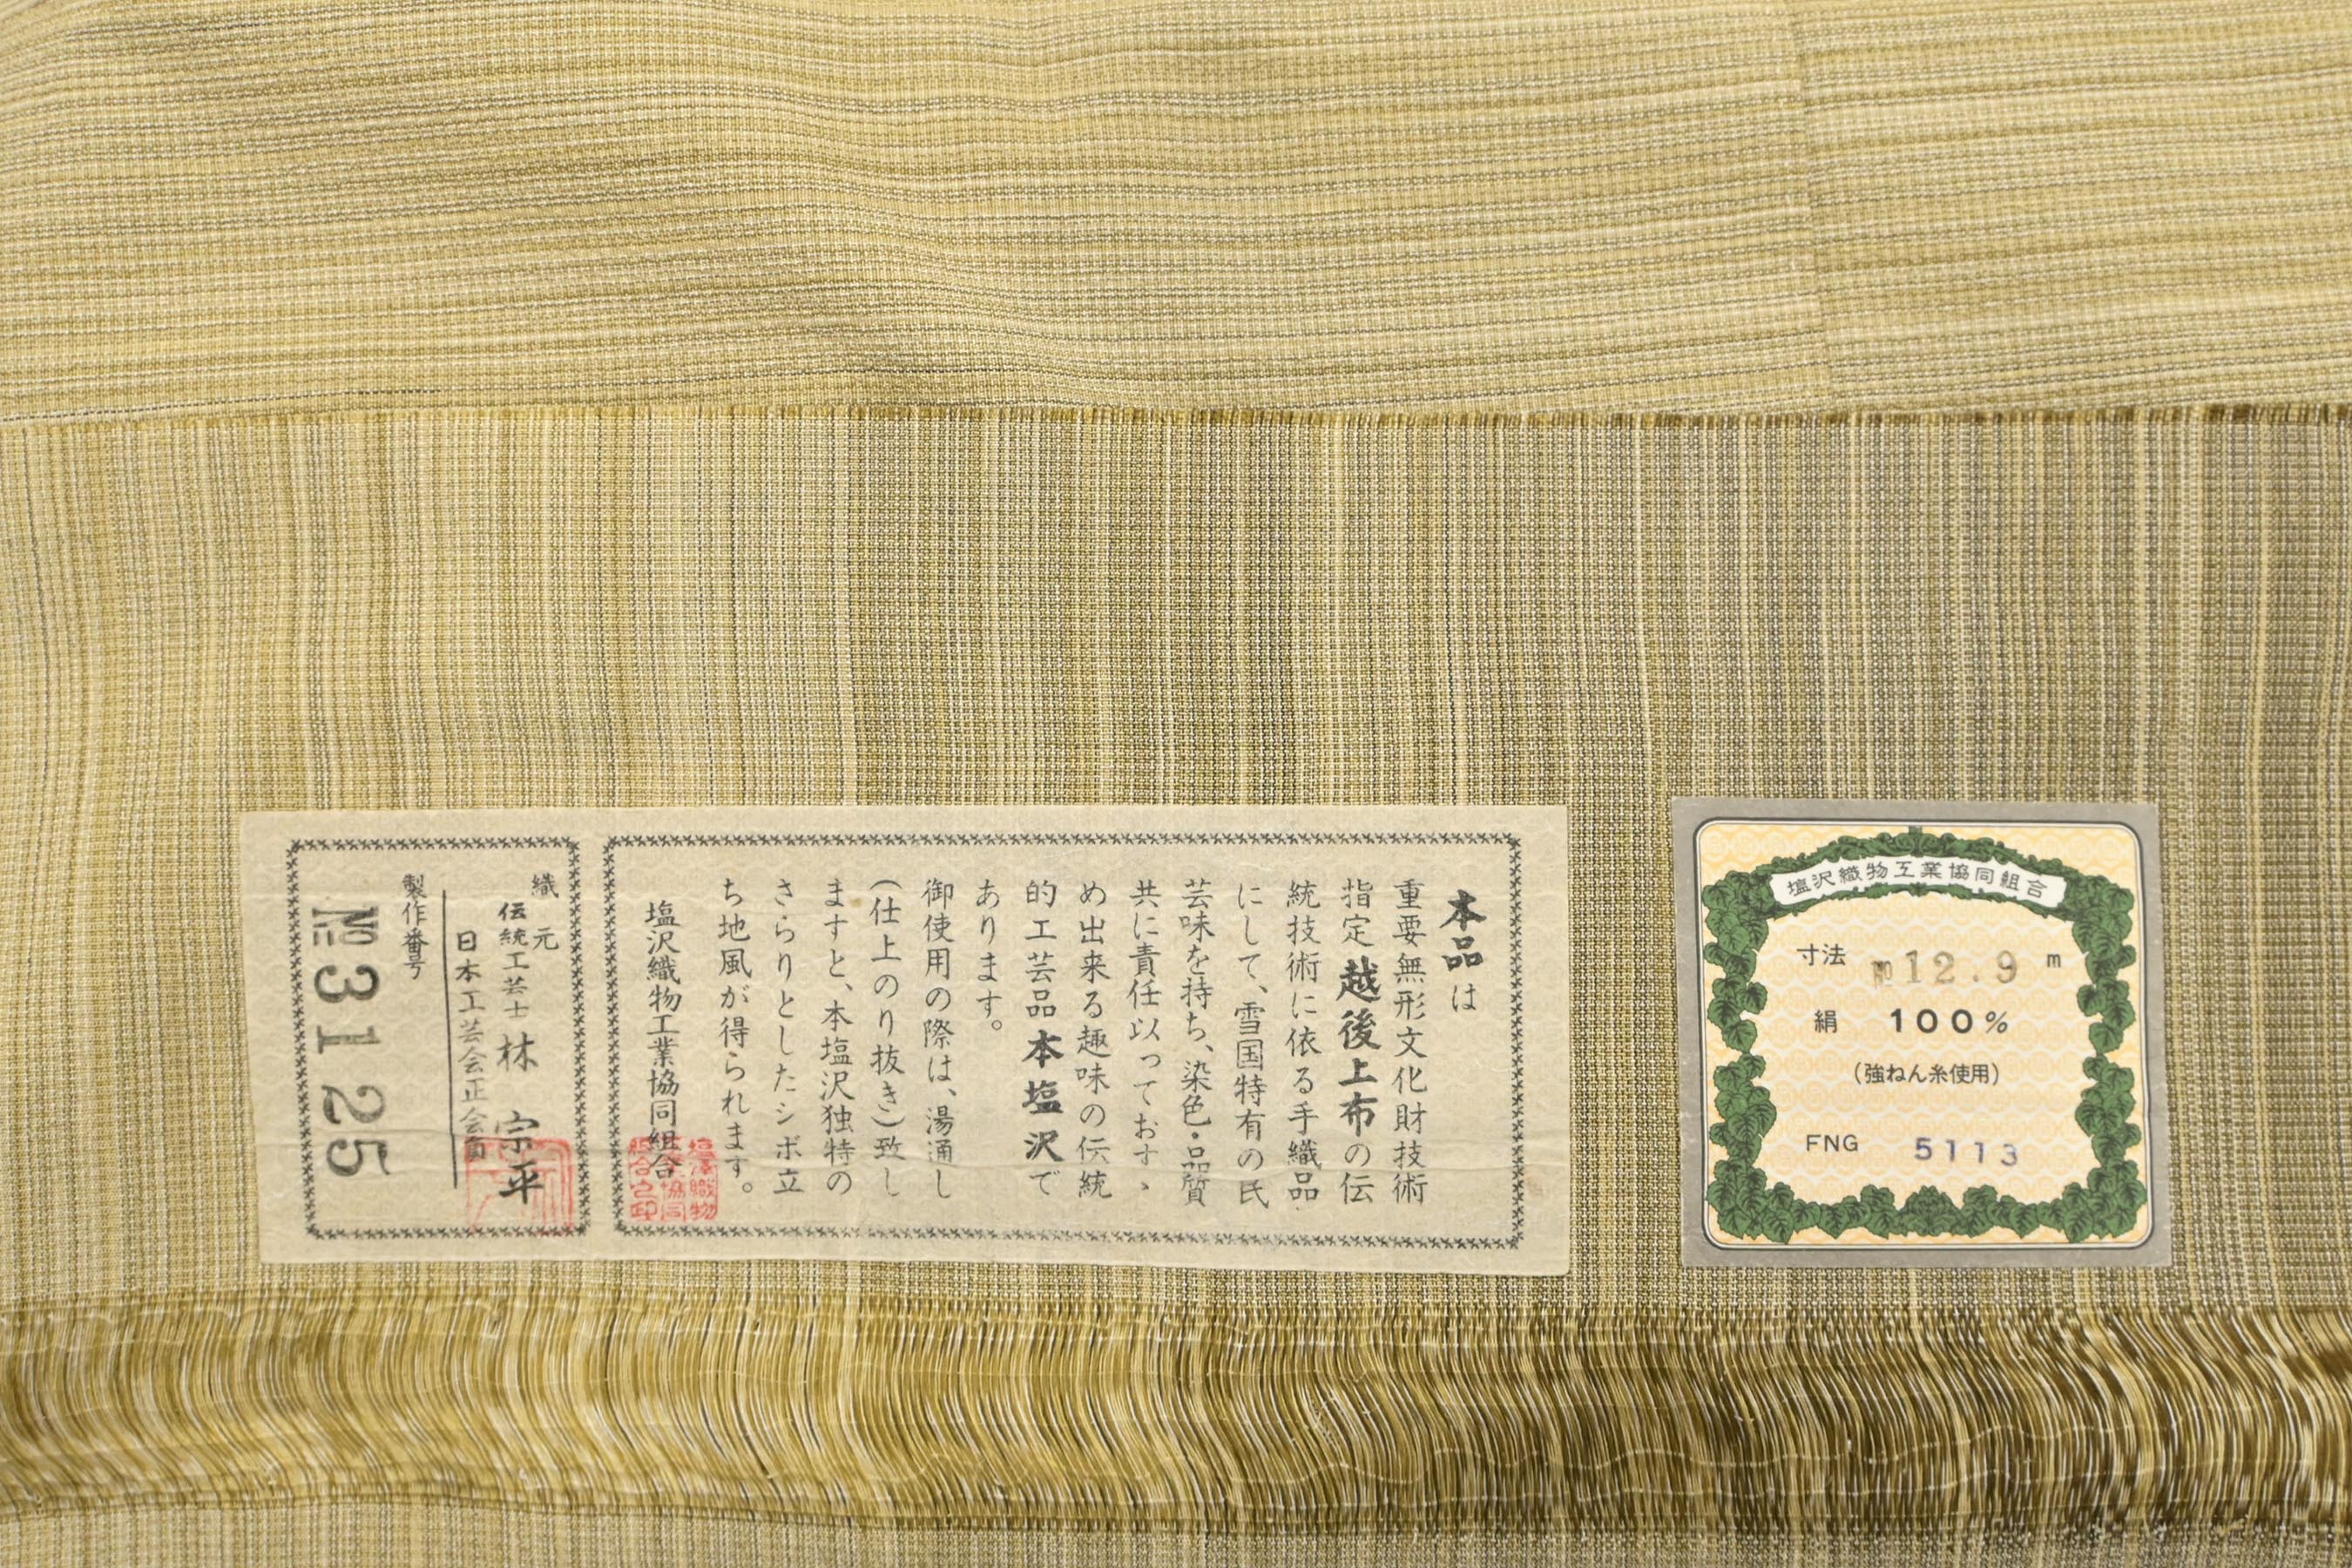 本品は
重要無形文化財技術
指定越後上布の伝
統技術に依る手織品
にして、雪国特有の民
芸味を持ち、染色・品質
共に責任以っておすゝ
め出来る趣味の伝統
的工芸品本塩沢で
あります。
御使用の際は、湯通し
(仕上のり抜き)致し
ますと、本塩沢独特の
さらりとしたシボ立
ち地風が得られます。
塩沢織物工業協同組合
織元
伝統工芸士 林 宗平
日本工芸会正会員
製作番号
№3125
塩沢織物工業協同組合
寸法 12.9 m
絹 100%
(強ねん糸使用)
FNG 5113